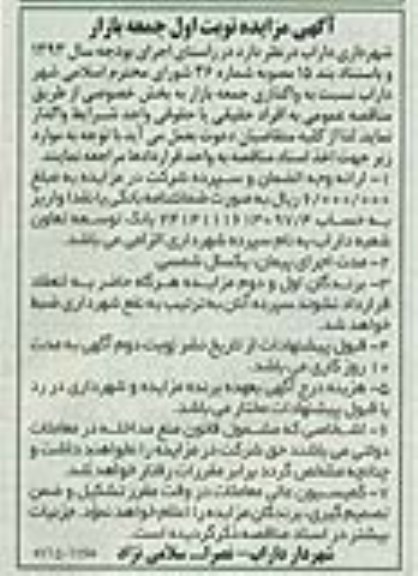 آگهی مزایده نوبت اول جمعه بازار
شهرداری داراب در نظر دارد در راستای اجرای بودجه سال ۱۳۹۳
و باستناد بند ۱۵ مصوبه شماره ۲۶ شورای محترم اسلامی شهر
داراب نسبت به واگذاری جمعه بازار به بخش خصوصی از طریق
مناقصه عمومی به افراد حقیقی یا حقوقی واجد شرایط واگذار
نماید لذا از کلیه متقاضیان دعوت بعمل می آید با توجه به موارد
زیر جهت اخذ اسناد مناقصه به واحد قراردادها مراجعه نمایند.
۱- ارائه وجه الضمان و سپرده شرکت در مزایده به مبلغ
ریال به صورت ضمانتنامه بانکی یا نقدا واریز
به حساب بانک توسعه تعاون
شعبه داراب به نام سپرده شهرداری الزامی می باشد.
۲- مدت اجرای پیمان: یکسال شمسی
۳- برندگان اول و دوم مزایده هرگاه حاضر به انعقاد
قرارداد نشوند سپرده آنان به ترتیب به نفع شهرداری ضبط
خواهد شد.
۴- قبول پیشنهادات از تاریخ نشر نوبت دوم آگهی به مدت
۱۰ روز کاری می باشد.
۵- هزینه درج آگهی بعهده برنده مزایده و شهرداری در رد
یا قبول پیشنهادات مختار می باشد.
۶- اشخاصی که مشمول قانون منع مداخله در معاملات
دولتی می باشند حق شرکت در مزایده را نخواهند داشت و
چنانچه مشخص گردد برابر مقررات رفتار خواهد شد.
۷- کمیسیون عالی معاملات در وقت مقرر تشکیل و ضمن
تصمیم گیری، برندگان مزایده را اعلام خواهد نمود. جزییات
بیشتر در اسناد مناقصه ذکر گردیده است.
شهردار داراب - نصرا... سلامی نژاد